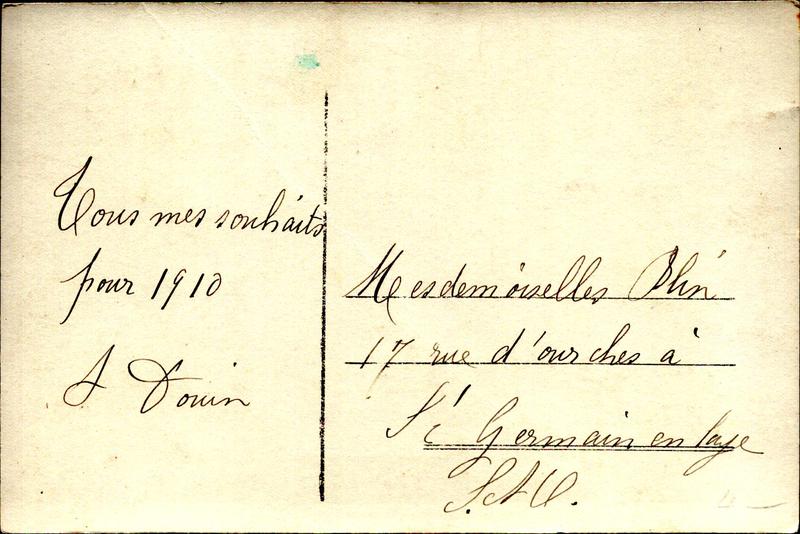 Tous mes souhaits
pour 1910
A Douin
Mesdemoiselles Blin
17 rue d'ourches à
St Germain en laye
S. et O.